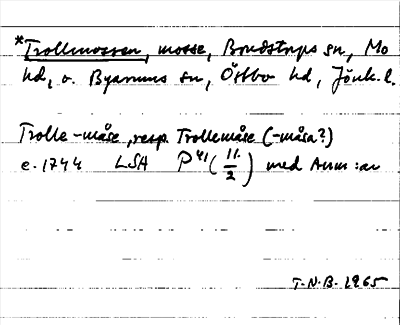 *Trollmossen, mosse, Bondstorps sn, Mo
hd, o. Byarums sn, Östbo hd, Jönk.l.
Trolle-måse, resp. Trollemåse (-måsa?)
e. 1744 LSA P41 (11/2) med Anm:ar
T.N.B. 1965